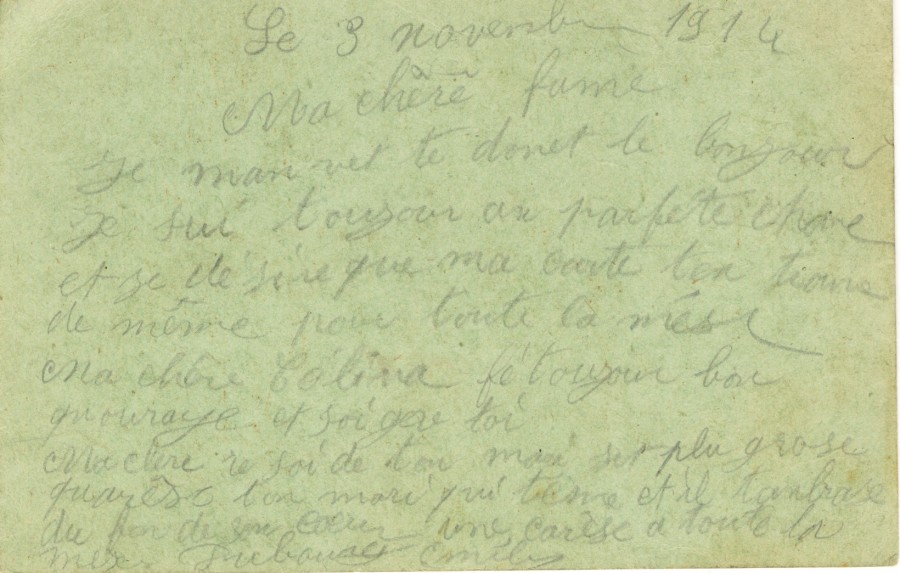 Le 3 novembre 1914
Ma chêrê fame
Je man vet te donet le bonjour
Je sui toujour an parfete
et je désire que ma carte ton
de même pour toute la
Ma chêre Célina fé toujour bon
quouraye et soigne toi
Ma chêre resoi de ton mari se plu grose
quarèse ton mari qui tème et il tanbrase
du fon de son cœur une carèse a toute la
Emile